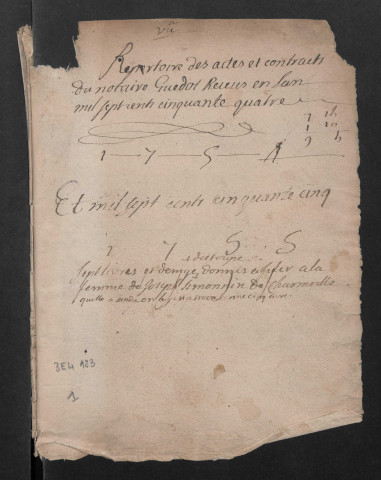 vû
Repertoire des actes et contracts
du notaire Guedot Receus en lan
mil sept cents cinquante quatre
1 7 5 4
Et mil sept cents cinquante cinq
1 7 5 5
sept livres et demye donnés a filer a la
femme de Joseph Simonnin de Charmoille
3E4 123
1